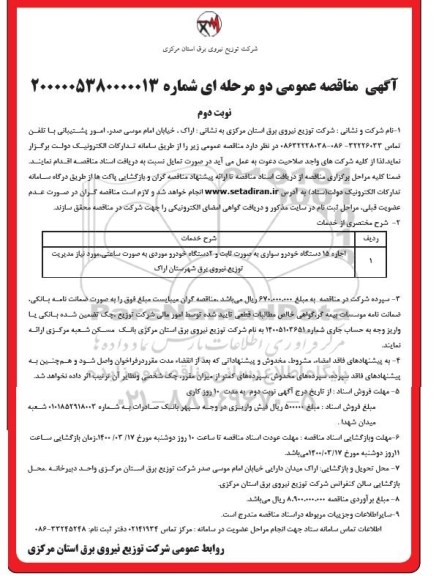 شرکت توزیع نیروی برق استان مرکزی
آگهی مناقصه عمومی دو مرحله ای شماره ۲۰۰۰۰۰۵۳۸۰۰۰۰۰۱۳
نوبت دوم
۱-نام شرکت و نشانی : شرکت توزیع نیروی برق استان مرکزی به نشانی : اراک ، خیابان امام موسی صدر، امور پشتیبانی با تلفن
تماس ۳۲۲۲۶۰۳۳-۰۸۶ ۰۸۶۳۲۲۲۸۰۳۸ در نظر دارد مناقصه عمومی زیر را از طریق سامانه تدارکات الکترونیک دولت برگزار
نماید.لذا از کلیه شرکت های واجد صلاحیت دعوت به عمل می آید در صورت تمایل نسبت به دریافت اسناد مناقصه اقدام نمایند.
ضمنا کلیه مراحل برگزاری مناقصه از دریافت اسناد مناقصه تا ارائه پیشنهاد مناقصه گران و بازگشایی پاکت ها از طریق درگاه سامانه
تدارکات الکترونیک دولت(ستاد) به آدرس www.setadiran.ir انجام خواهد شد و لازم است مناقصه گران در صورت عدم
عضویت قبلی، مراحل ثبت نام در سایت مذکور و دریافت گواهی امضای الکترونیکی را جهت شرکت در مناقصه محقق سازند.
۲- شرح مختصری از خدمات
ردیف شرح خدمات
۱ اجاره ۱۵ دستگاه خودرو سواری به صورت ثابت و ۲دستگاه خودرو موردی به صورت ساعتی،مورد نیاز مدیریت
توزیع نیروی برق شهرستان اراک
۳- سپرده شرکت در مناقصه به مبلغ ۶۷۰،۰۰۰،۰۰۰ ریال می‌باشد .مناقصه گران میبایست مبلغ فوق را به صورت ضمانت نامه بانکی،
ضمانت نامه موسسات بیمه گر،گواهی خالص مطالبات قطعی تایید شده توسط امور مالی شرکت توزیع ،چک تضمین شده بانکی یا
واریز وجه به حساب جاری شماره ۱۴۰۰۵۱۰۳۶۵۱ به نام شرکت توزیع نیروی برق استان مرکزی بانک مسکن شعبه مرکزی ارائه
نمایند.
۴- به پیشنهادهای فاقد امضاء، مشروط، مخدوش و پیشنهاداتی که بعد از انقضاء مدت مقرردرفراخوان واصل شود و همچنین به
پیشنهادهای فاقد سپرده، سپرده‌های مخدوش،سپرده‌های کمتر از میزان مقرر، چک شخصی ونظایر آن ترتیب اثر داده نخواهد شد.
۵- مهلت فروش اسناد : از تاریخ درج آگهی نوبت دوم به مدت ۱۰ روز کاری
مبلغ فروش اسناد : مبلغ ۵۰۰۰۰۰ ریال فیش واریزی در وجه سپهر بانک صادرات به شماره ۰۱۰۱۸۵۲۹۱۸۰۰۳ شعبه
میدان شهدا .
۶-مهلت وبازگشایی اسناد مناقصه : مهلت عودت اسناد مناقصه تا ساعت ۱۰ روز دوشنبه مورخ ۱۷/ ۰۳/ ۱۴۰۰،زمان بازگشایی ساعت
۱۱روز دوشنبه مورخ ۱۴۰۰/۰۳/۱۷می‌باشد.
۷- محل تحویل و بازگشایی: اراک میدان دارایی خیابان امام موسی صدر شرکت توزیع برق استان مرکزی واحد دبیرخانه .محل
بازگشایی سالن کنفرانس شرکت توزیع نیروی برق استان مرکزی.
۸- مبلغ برآوردی مناقصه ۸،۹۰۰،۰۰۰،۰۰۰ ریال می‌باشد.
۹-سایراطلاعات وجزییات مربوطه دراسناد مناقصه مندرج است.
اطلاعات تماس سامانه ستاد جهت انجام مراحل عضویت در سامانه : مرکز تماس ۰۲۱۴۱۹۳۴ دفتر ثبت نام: ۳۳۲۴۵۲۴۸-۰۸۶
روابط عمومی شرکت توزیع نیروی برق استان مرکزی